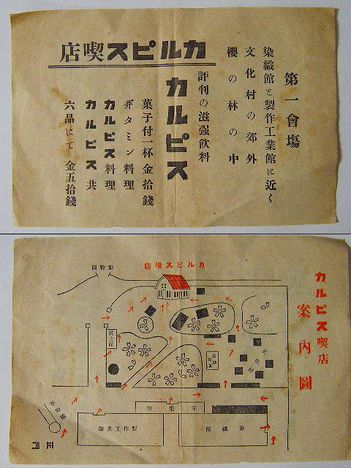 第一會塲
染織館と製作工業館に近く
文化村の郊外
櫻の林の中
評判の滋强飲料
カルピス
カルピス喫店
菓子付一杯金拾錢
ヸタミン料理
カルピス料理
カルピス共
六品にて 金五拾錢
カルピス喫店
案內圖
カルピス喫店
染織館
製作工業館
正門